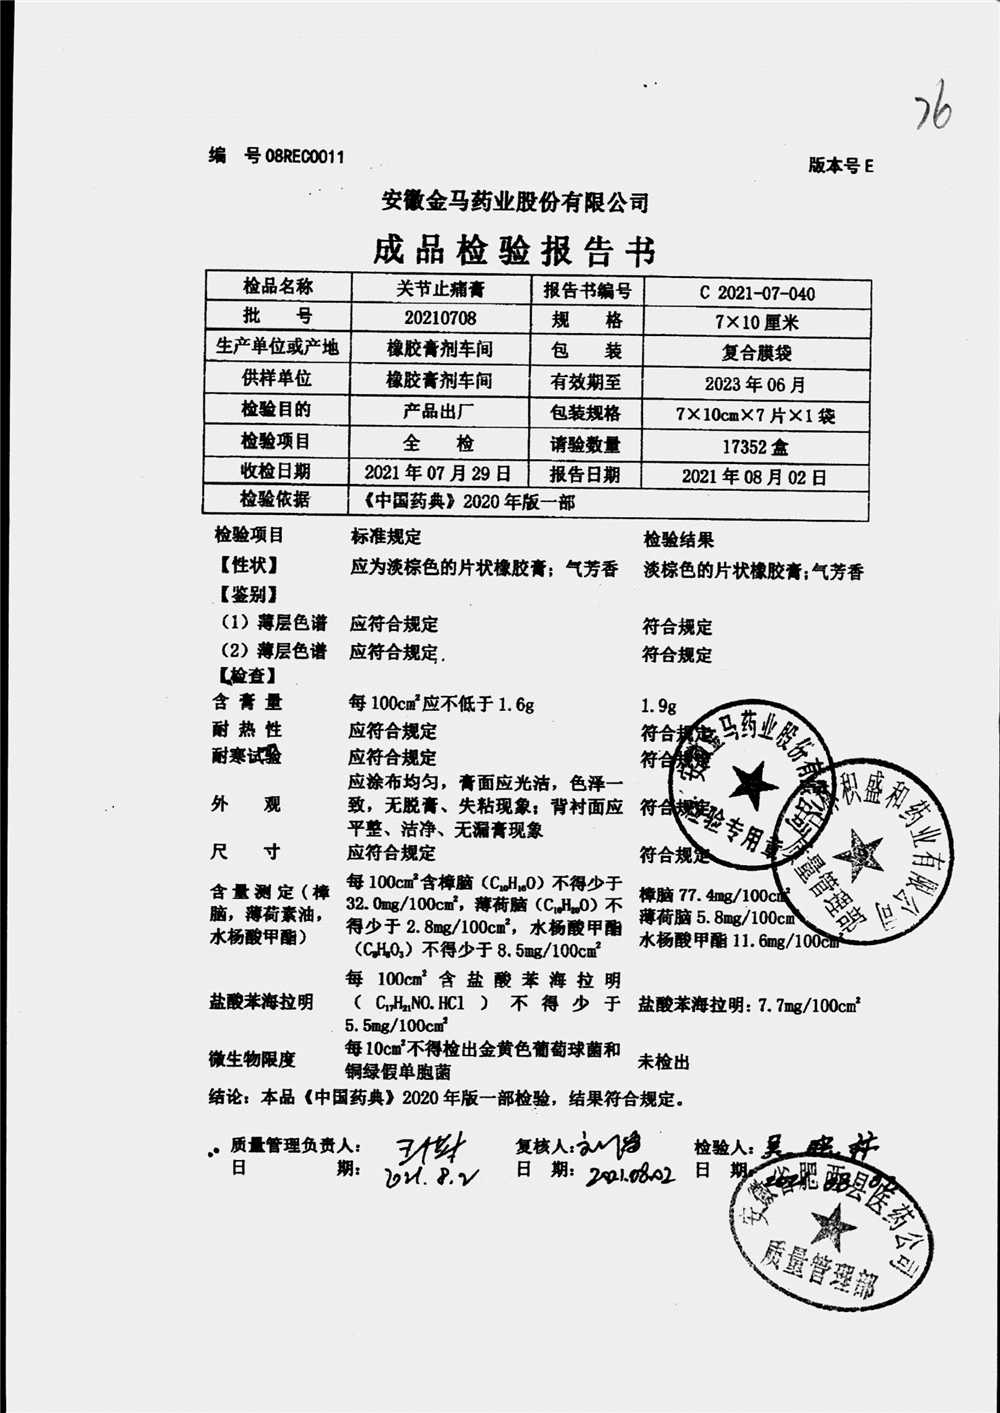 76
编 号08REC0011
版本号E
安徽金马药业股份有限公司
成品检验报告书
检品名称 关节止痛膏 报告书编号 C 2021-07-040
批 号 20210708 规 格 7×10厘米
生产单位或产地 橡胶膏剂车间 包 装 复合膜袋
供样单位 橡胶膏剂车间 有效期至 2023年06月
检验目的 产品出厂 包装规格 7×10cm×7片×1袋
检验项目 全 检 请验数量 17352盒
收检日期 2021年07月29日 报告日期 2021年08月02日
检验依据 《中国药典》2020年版一部
检验项目 标准规定 检验结果
【性状】 应为淡棕色的片状橡胶膏；气芳香 淡棕色的片状橡胶膏；气芳香
【鉴别】
（1）薄层色谱 应符合规定 符合规定
（2）薄层色谱 应符合规定. 符合规定
【检查】
含 膏 量 每100cm²应不低于1.6g 1.9g
耐 热 性 应符合规定 符合规定
耐寒试验 应符合规定 符合规定
应涂布均匀，膏面应光洁，色泽一
外 观 致，无脱膏、失粘现象；背衬面应 符合规定
平整、洁净、无漏膏现象
尺 寸 应符合规定 符合规定
含量测定（樟
脑，薄荷素油，
水杨酸甲酯）
每100cm²含樟脑（C₁₀H₁₆O）不得少于
32.0mg/100cm²，薄荷脑（C₁₀H₂₀O）不
得少于2.8mg/100cm²，水杨酸甲酯
（C₈H₈O₃）不得少于8.5mg/100cm²
樟脑77.4mg/100cm²
薄荷脑5.8mg/100cm
水杨酸甲酯11.6mg/100cm²
每 100cm² 含盐酸苯海拉明
盐酸苯海拉明 （C₁₇H₂₁NO.HCl）不得少于 盐酸苯海拉明：7.7mg/100cm²
5.5mg/100cm²
微生物限度 每10cm²不得检出金黄色葡萄球菌和 未检出
铜绿假单胞菌
结论：本品《中国药典》2020年版一部检验，结果符合规定。
质量管理负责人： 复核人： 检验人：
日 期： 2021.8.2 日 期： 2021.08.02 日 期
安徽金马药业股份有限公司
检验专用章
积盛和药业有限公司
质量管理部
安徽省肥西县医药公司
质量管理部